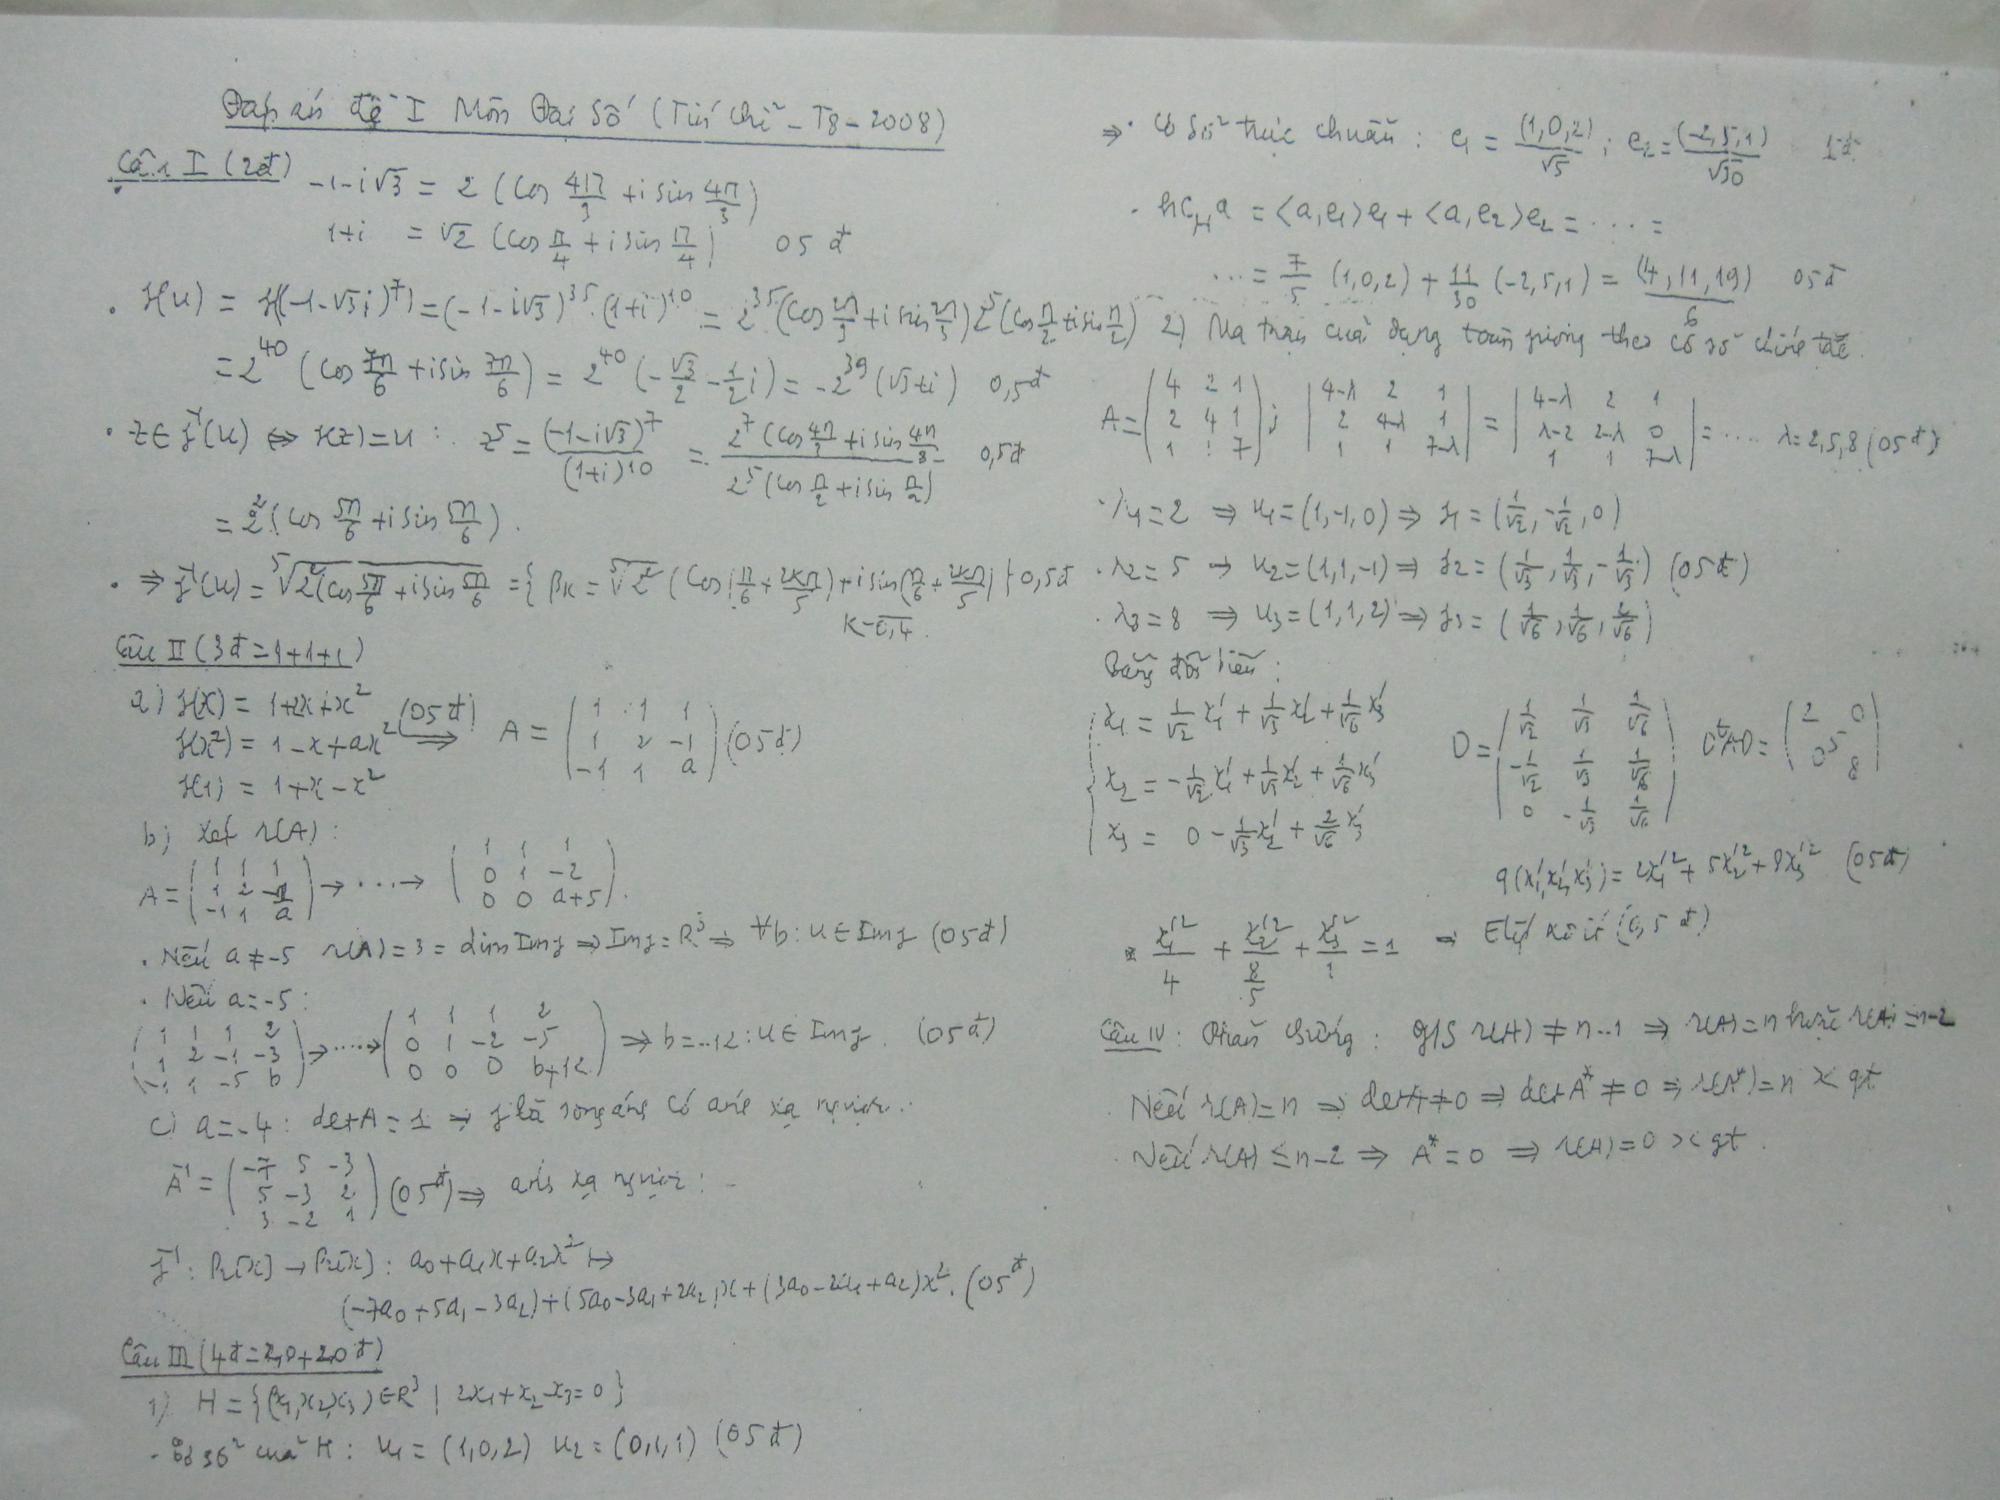 Đáp án đề I Môn Đại Số (Tín chỉ - T8 - 2008)
Câu I (2đ) -1-i√3 = 2 (cos 4π/3 + i sin 4π/3)
1+i = √2 (cos π/4 + i sin π/4) 05 đ
. f(u) = f((-1-√3i)^7) = (-1-i√3)^35.(1+i)^10 = 2^35 (cos 2π/3 + i sin 2π/3) 2^5 (cos π/2 + i sin π/2)
= 2^40 (cos 7π/6 + i sin 7π/6) = 2^40 (-√3/2 - 1/2 i) = -2^39 (√3+i) 0,5đ
. z ∈ f^-1(u) ⇔ f(z) = u : z^5 = (-1-i√3)^7/(1+i)^10 = 2^7 (cos 4π/3 + i sin 4π/3)/2^5 (cos π/2 + i sin π/2) 0,5đ
= 2^2 (cos 5π/6 + i sin 5π/6).
. ⇒ f^-1(u) = ⁵√(2^2 (cos 5π/6 + i sin 5π/6)) = { βk = ⁵√2^2 (cos(π/6 + 2kπ/5) + i sin(π/6 + 2kπ/5) } 0,5đ
k=0,4.
Câu II (3đ = 1+1+1)
a) f(x) = 1+2x+x^2
f(x^2) = 1-x+ax^2 (05 đ) ⇒ A = (1 1 1; 1 2 -1; -1 1 a) (05đ)
f(1) = 1+x-x^2
b) Xét r(A) :
A = (1 1 1; 1 2 -1; -1 1 a) → .... → (1 1 1; 0 1 -2; 0 0 a+5).
. Nếu a ≠ -5 r(A) = 3 = dim Imf ⇒ Imf = R^3 ⇒ ∀b: u ∈ Imf (05đ)
. Nếu a = -5 :
(1 1 1 2; 1 2 -1 -3; -1 1 -5 b) → ..... → (1 1 1 2; 0 1 -2 -5; 0 0 0 b+12) ⇒ b = -12 : u ∈ Imf. (05đ)
c) a = -4 : detA = 1 ⇒ f là song ánh có ánh xạ ngược.
A^-1 = (-7 5 -3; 5 -3 2; 3 -2 1) (05đ) ⇒ ánh xạ ngược :
f^-1 : P2[x] → P2[x] : a0+a1x+a2x^2 ↦
(-7a0+5a1-3a2)+(5a0-3a1+2a2)x+(3a0-2a1+a2)x^2. (05đ)
Câu III (4đ = 2,0+2,0đ)
1) H = {(x1,x2,x3) ∈ R^3 | 2x1+x2-x3=0}
- Cơ sở của H : u1 = (1,0,2) u2 = (0,1,1) (05đ)
⇒ . Cơ sở trực chuẩn : e1 = (1,0,2)/√5 ; e2 = (-2,5,1)/√30 1đ
. hc_H a = <a,e1>e1 + <a,e2>e2 = .... =
... = 7/5 (1,0,2) + 11/30 (-2,5,1) = (4,11,19)/6 05đ
2) Ma trận của dạng toàn phương theo cơ sở chính tắc.
A = (4 2 1; 2 4 1; 1 1 7) ; |4-λ 2 1; 2 4-λ 1; 1 1 7-λ| = |4-λ 2 1; λ-2 2-λ 0; 1 1 7-λ| = .... λ = 2,5,8 (05đ)
. λ1 = 2 ⇒ u1 = (1,-1,0) ⇒ f1 = (1/√2, -1/√2, 0)
. λ2 = 5 → u2 = (1,1,-1) ⇒ f2 = (1/√3, 1/√3, -1/√3) (05đ)
. λ3 = 8 ⇒ u3 = (1,1,2) ⇒ f3 = (1/√6, 1/√6, 2/√6)
Bằng đổi biến :
x1 = 1/√2 x1' + 1/√3 x2' + 1/√6 x3'
x2 = -1/√2 x1' + 1/√3 x2' + 1/√6 x3'
x3 = 0 - 1/√3 x2' + 2/√6 x3'
O = (1/√2 1/√3 1/√6; -1/√2 1/√3 1/√6; 0 -1/√3 1/√6) O^tAO = (2 0; 5; 0 8)
q(x1',x2',x3') = 2x1'^2 + 5x2'^2 + 8x3'^2 (05đ)
x1'^2/4 + x2'^2/(8/5) + x3'^2/1 = 1 ⇒ Elipxôit (0,5đ)
Câu IV : Phản chứng : g/s r(A) ≠ n-1 ⇒ r(A) = n hoặc r(A) ≤ n-2
. Nếu r(A) = n ⇒ detA ≠ 0 ⇒ detA* ≠ 0 ⇒ r(A*) = n × gt
. Nếu r(A) ≤ n-2 ⇒ A* = 0 ⇒ r(A) = 0 × gt.